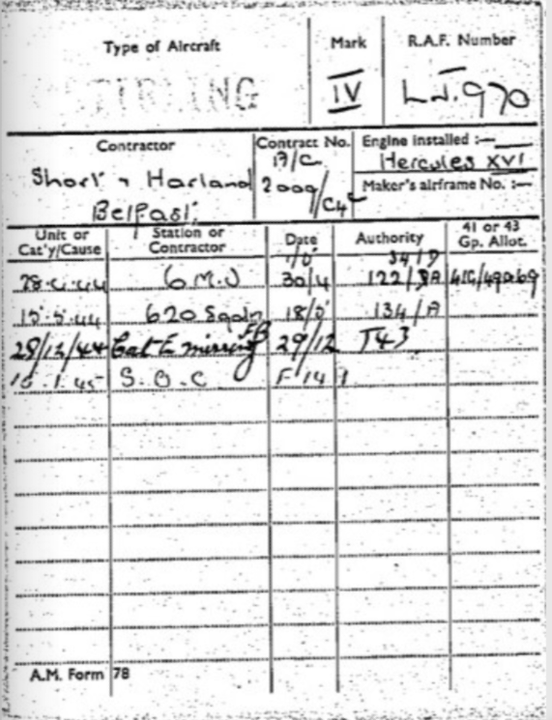 Type of Aircraft Mark R.A.F. Number
STIRLING IV LJ.970
Contractor Contract No. Engine installed :—
Short & Harland A/C Hercules XVI
2009/C4C Maker's airframe No. :—
Belfast
Unit or Cat'y/Cause Station or Contractor Date Authority 41 or 43 Gp. Allot.
28.4.44 6 M.U 30/4 122/ 41G/
15.5.44 620 Sqdn 18/5 134/A
28/12/44 Cat E missing FB 29/12 T43
S.O.C F 14
A.M. Form 78